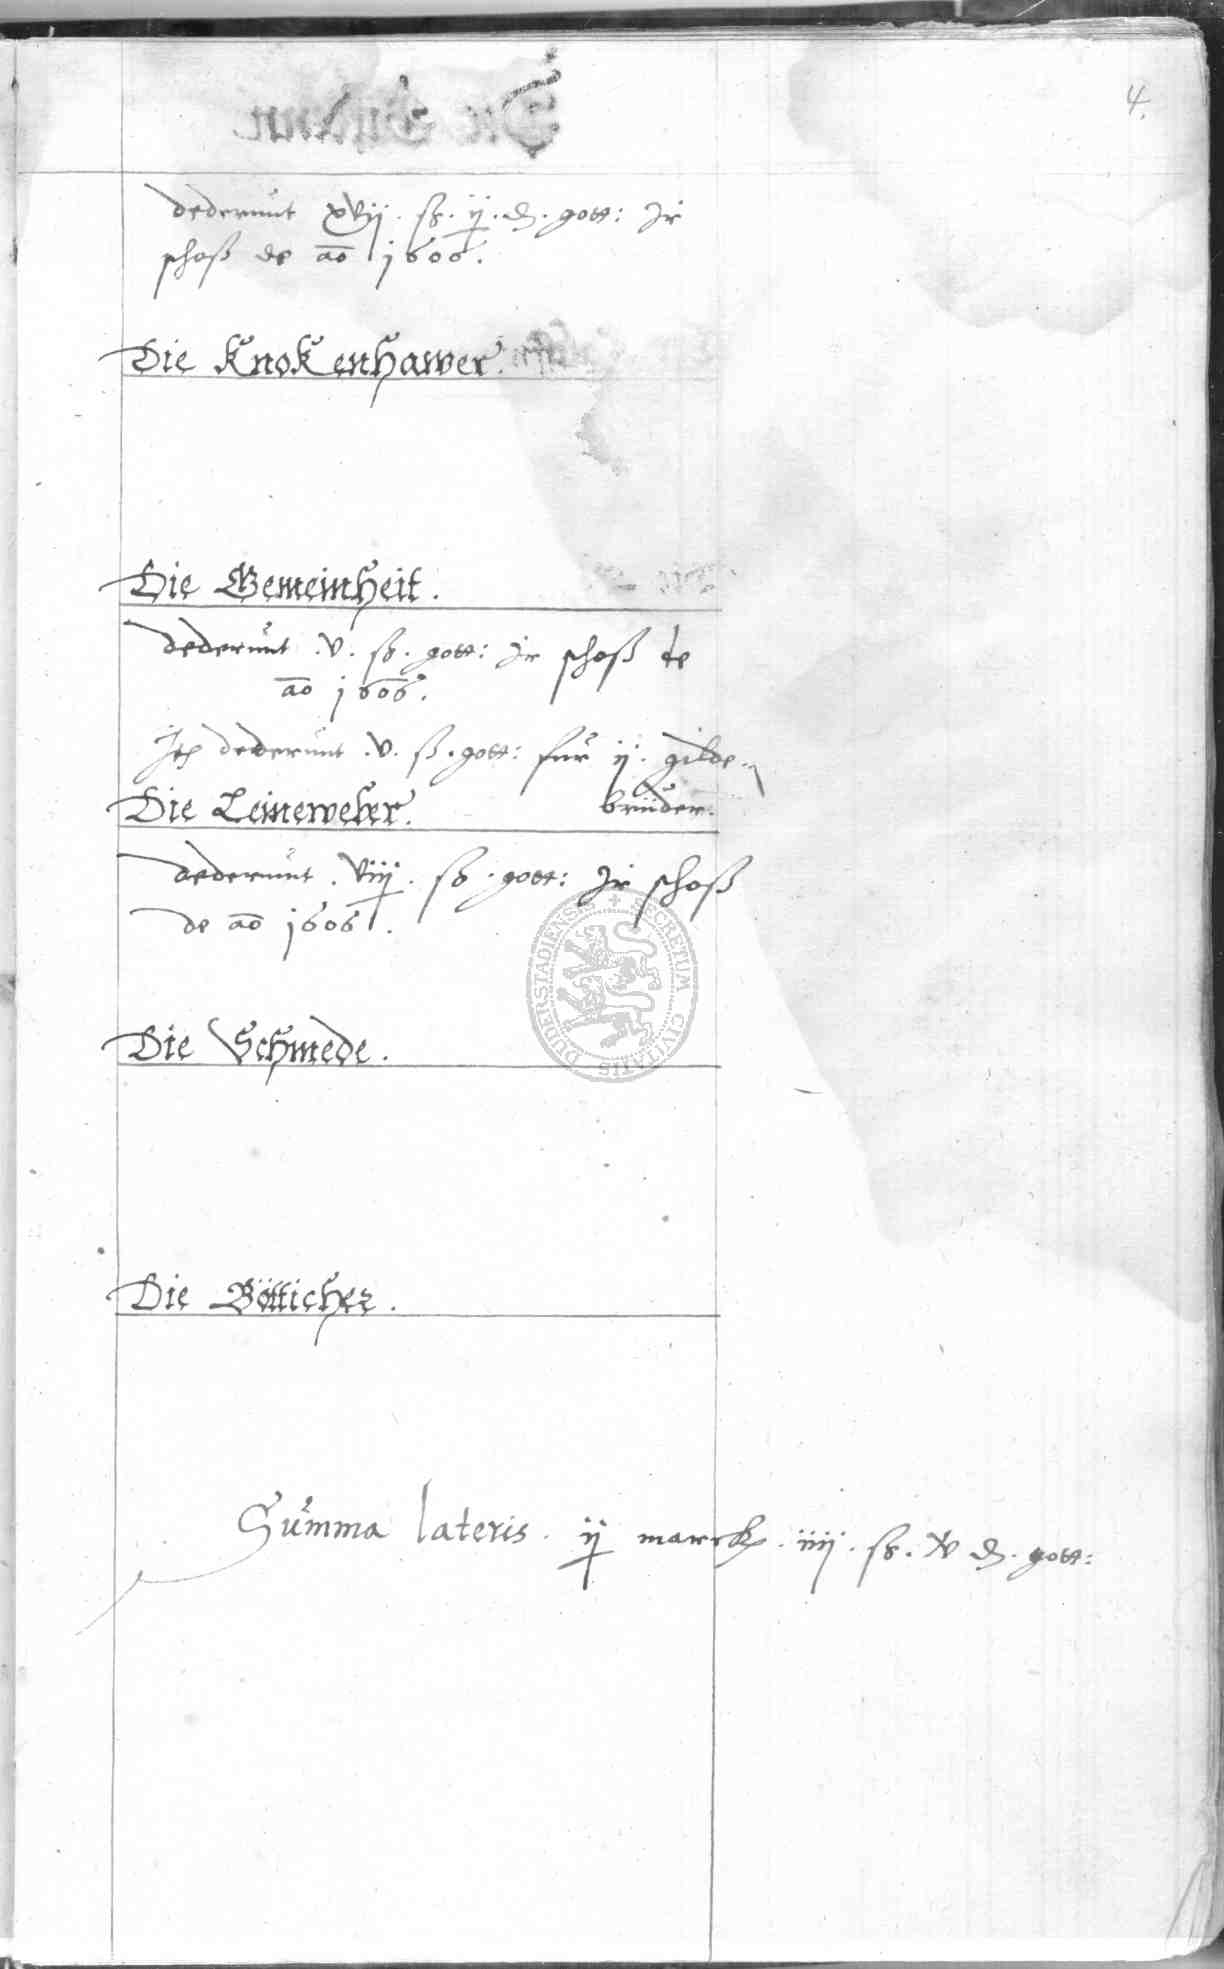 4.
dederunt xvij. ß. ij. d. gott: Jr
schoß de ao 1606.
Die KnoKenhawer.
Die Gemeinheit.
dederunt .v. ß. gott: Jr schoß de
ao 1606.
Jtem dederunt .v. ß. gott: fur ij. gilde
brüder.
Die Leineweber.
dederunt . viij . ß . gott: Jr schoß
de ao 1606.
SECRETUM CIVITATIS DUDERSTADIENSIS
Die Schmede.
Die Bötticher.
Summa lateris. ij marck. iiij. ß. d. gott: